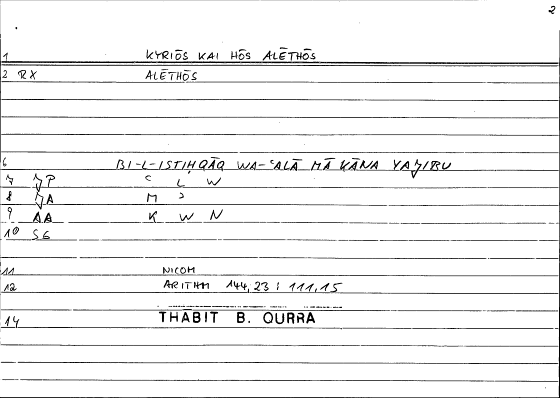 2
1 KYRIŌS KAI HŌS ALĒTHŌS
2 RX ALĒTHŌS
6 BI-L-ISTIḤQĀQ WA-ʿALĀ MĀ KĀNA YAǦIBU
7 ǦP ʿ L W
8 ǦA M ʾ
9 AA K W N
10 SG
11 NICOM
12 ARITHM 144,23 : 111,15
14 THABIT B. QURRA